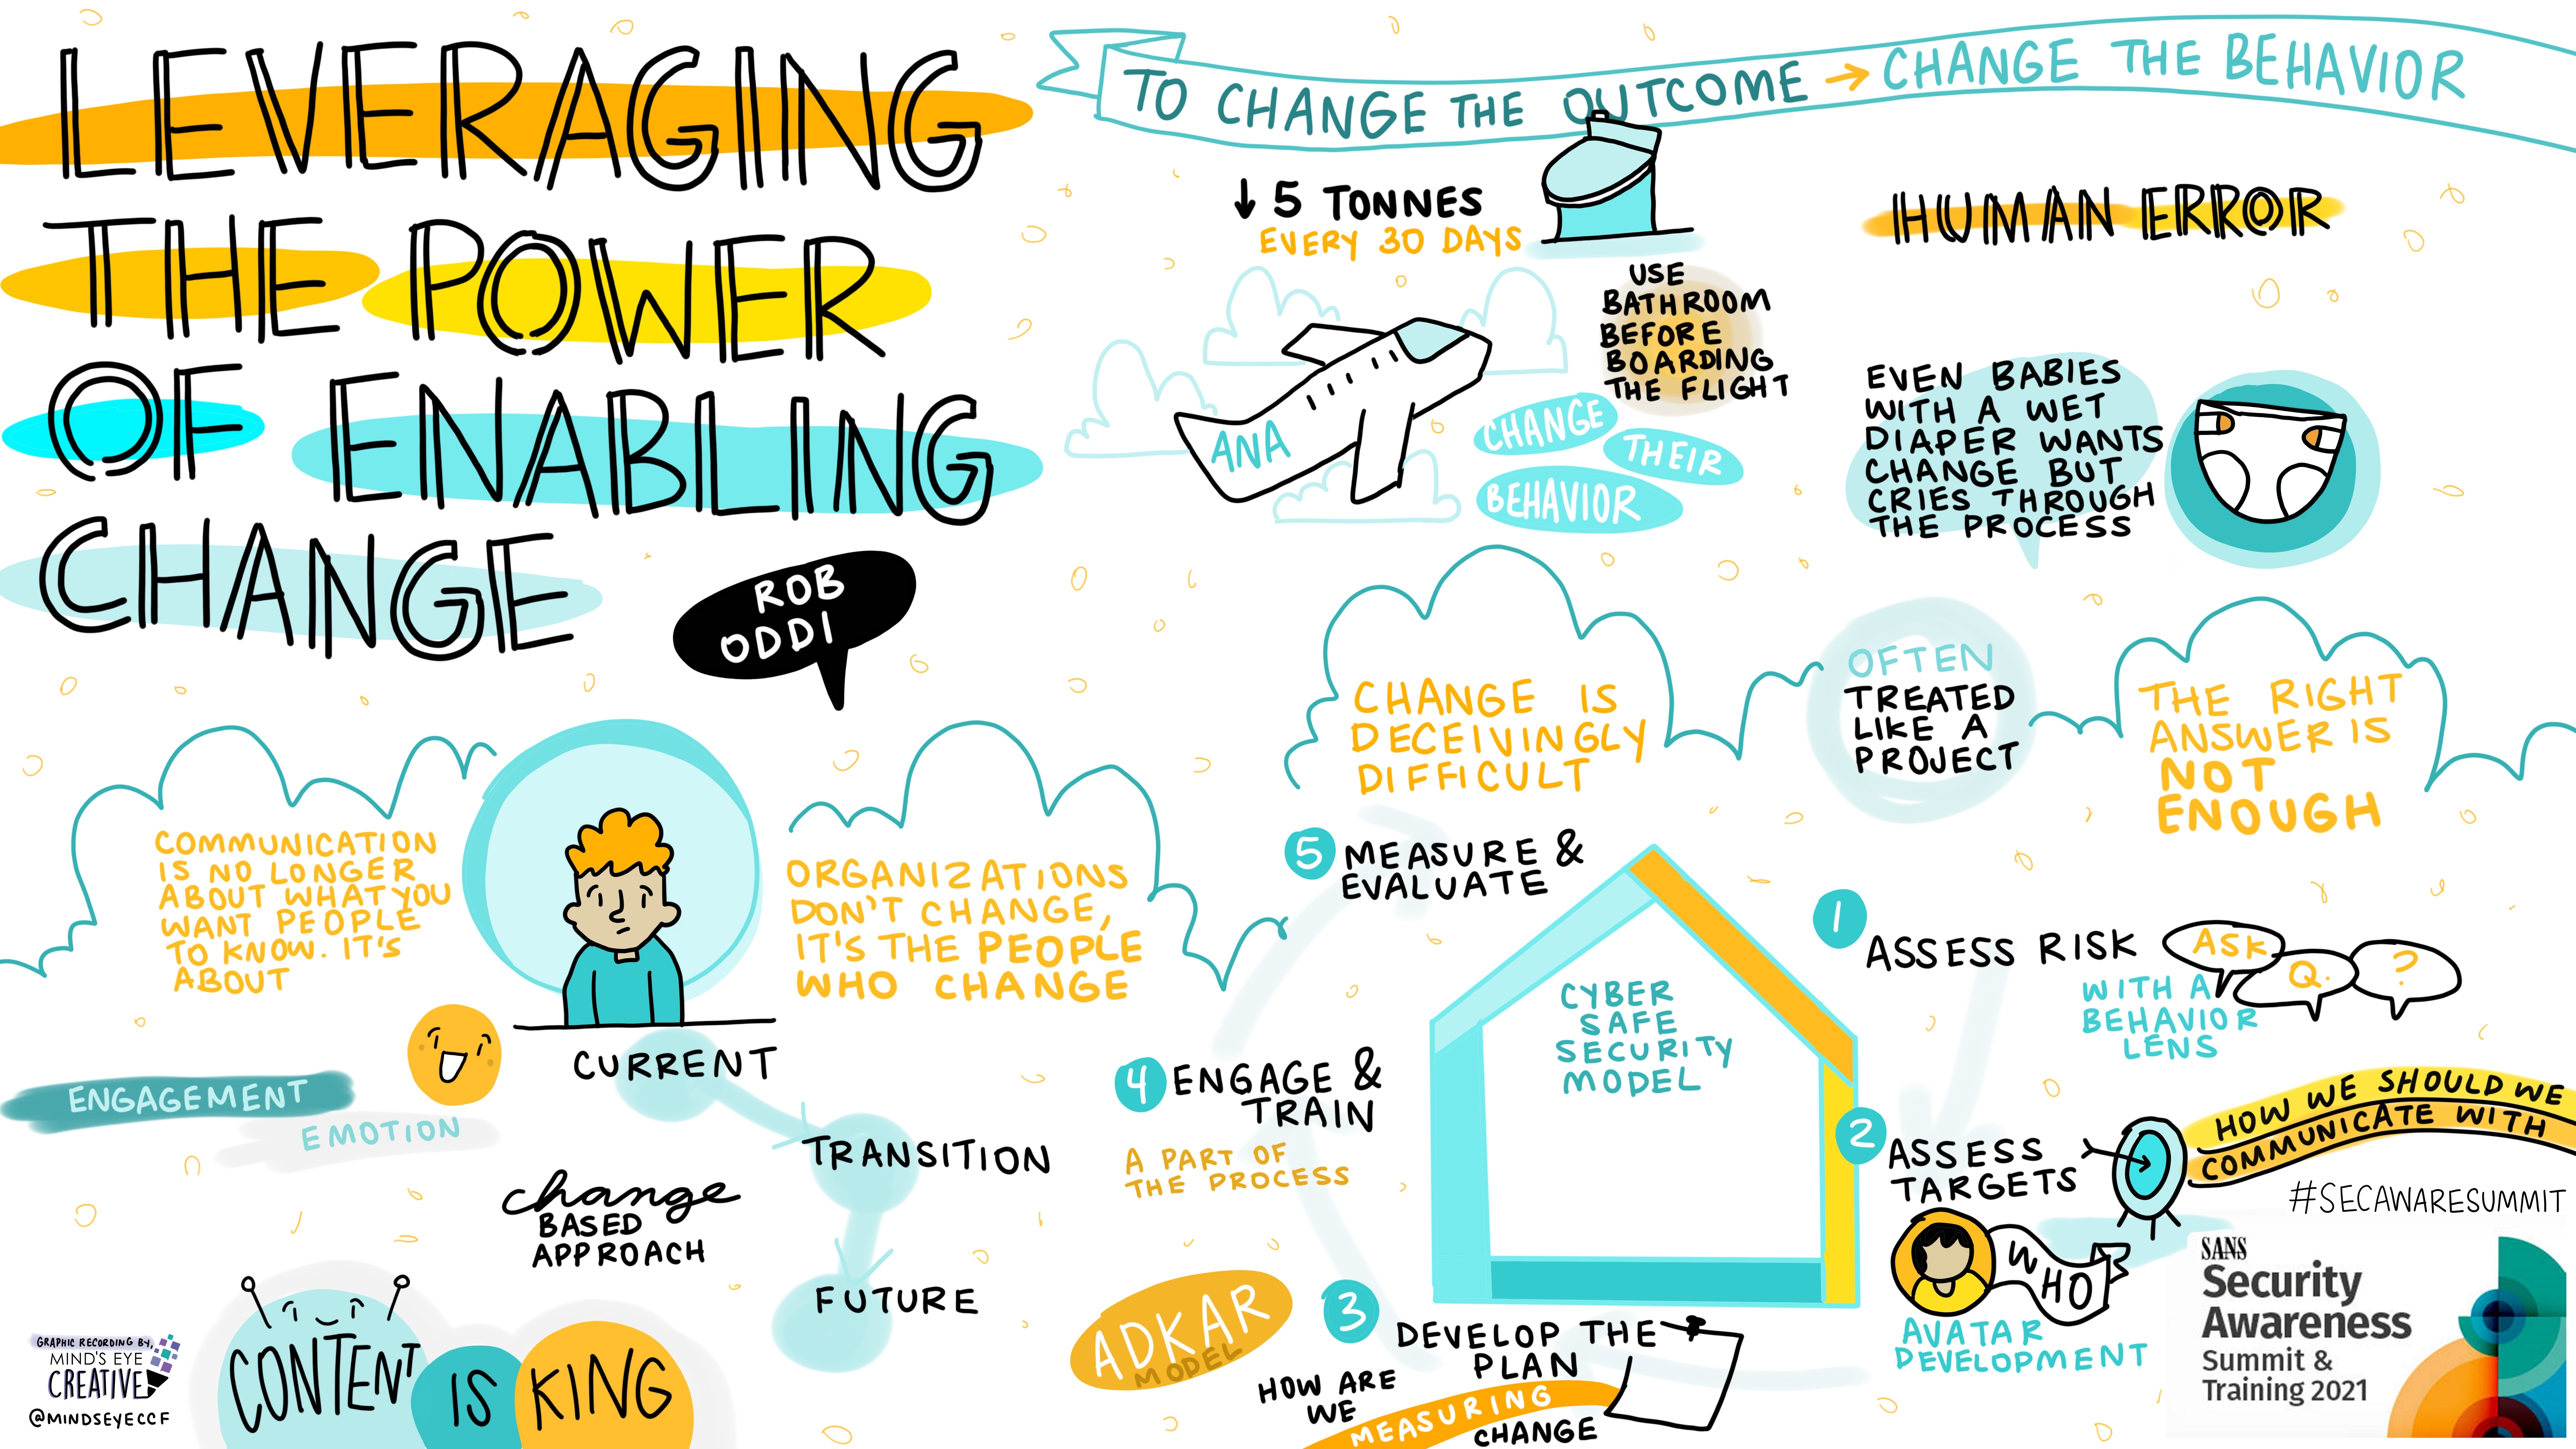 LEVERAGING
THE POWER
OF ENABLING
CHANGE
ROB
ODDI
TO CHANGE THE OUTCOME → CHANGE THE BEHAVIOR
↓ 5 TONNES
EVERY 30 DAYS
USE
BATHROOM
BEFORE
BOARDING
THE FLIGHT
ANA
CHANGE
THEIR
BEHAVIOR
HUMAN ERROR
EVEN BABIES
WITH A WET
DIAPER WANTS
CHANGE BUT
CRIES THROUGH
THE PROCESS
COMMUNICATION
IS NO LONGER
ABOUT WHAT YOU
WANT PEOPLE
TO KNOW. IT'S
ABOUT
ENGAGEMENT
EMOTION
ORGANIZATIONS
DON'T CHANGE,
IT'S THE PEOPLE
WHO CHANGE
CURRENT
TRANSITION
FUTURE
change
BASED
APPROACH
CONTENT IS KING
GRAPHIC RECORDING BY,
MIND'S EYE
CREATIVE
@MINDSEYECCF
CHANGE IS
DECEIVINGLY
DIFFICULT
OFTEN
TREATED
LIKE A
PROJECT
THE RIGHT
ANSWER IS
NOT
ENOUGH
CYBER
SAFE
SECURITY
MODEL
1
ASSESS RISK
ASK
Q.
?
WITH A
BEHAVIOR
LENS
2
ASSESS
TARGETS
HOW WE SHOULD WE
COMMUNICATE WITH
WHO
AVATAR
DEVELOPMENT
3
DEVELOP THE
PLAN
HOW ARE
WE
MEASURING
CHANGE
ADKAR
MODEL
4
ENGAGE &
TRAIN
A PART OF
THE PROCESS
5
MEASURE &
EVALUATE
#SECAWARESUMMIT
SANS
Security
Awareness
Summit &
Training 2021